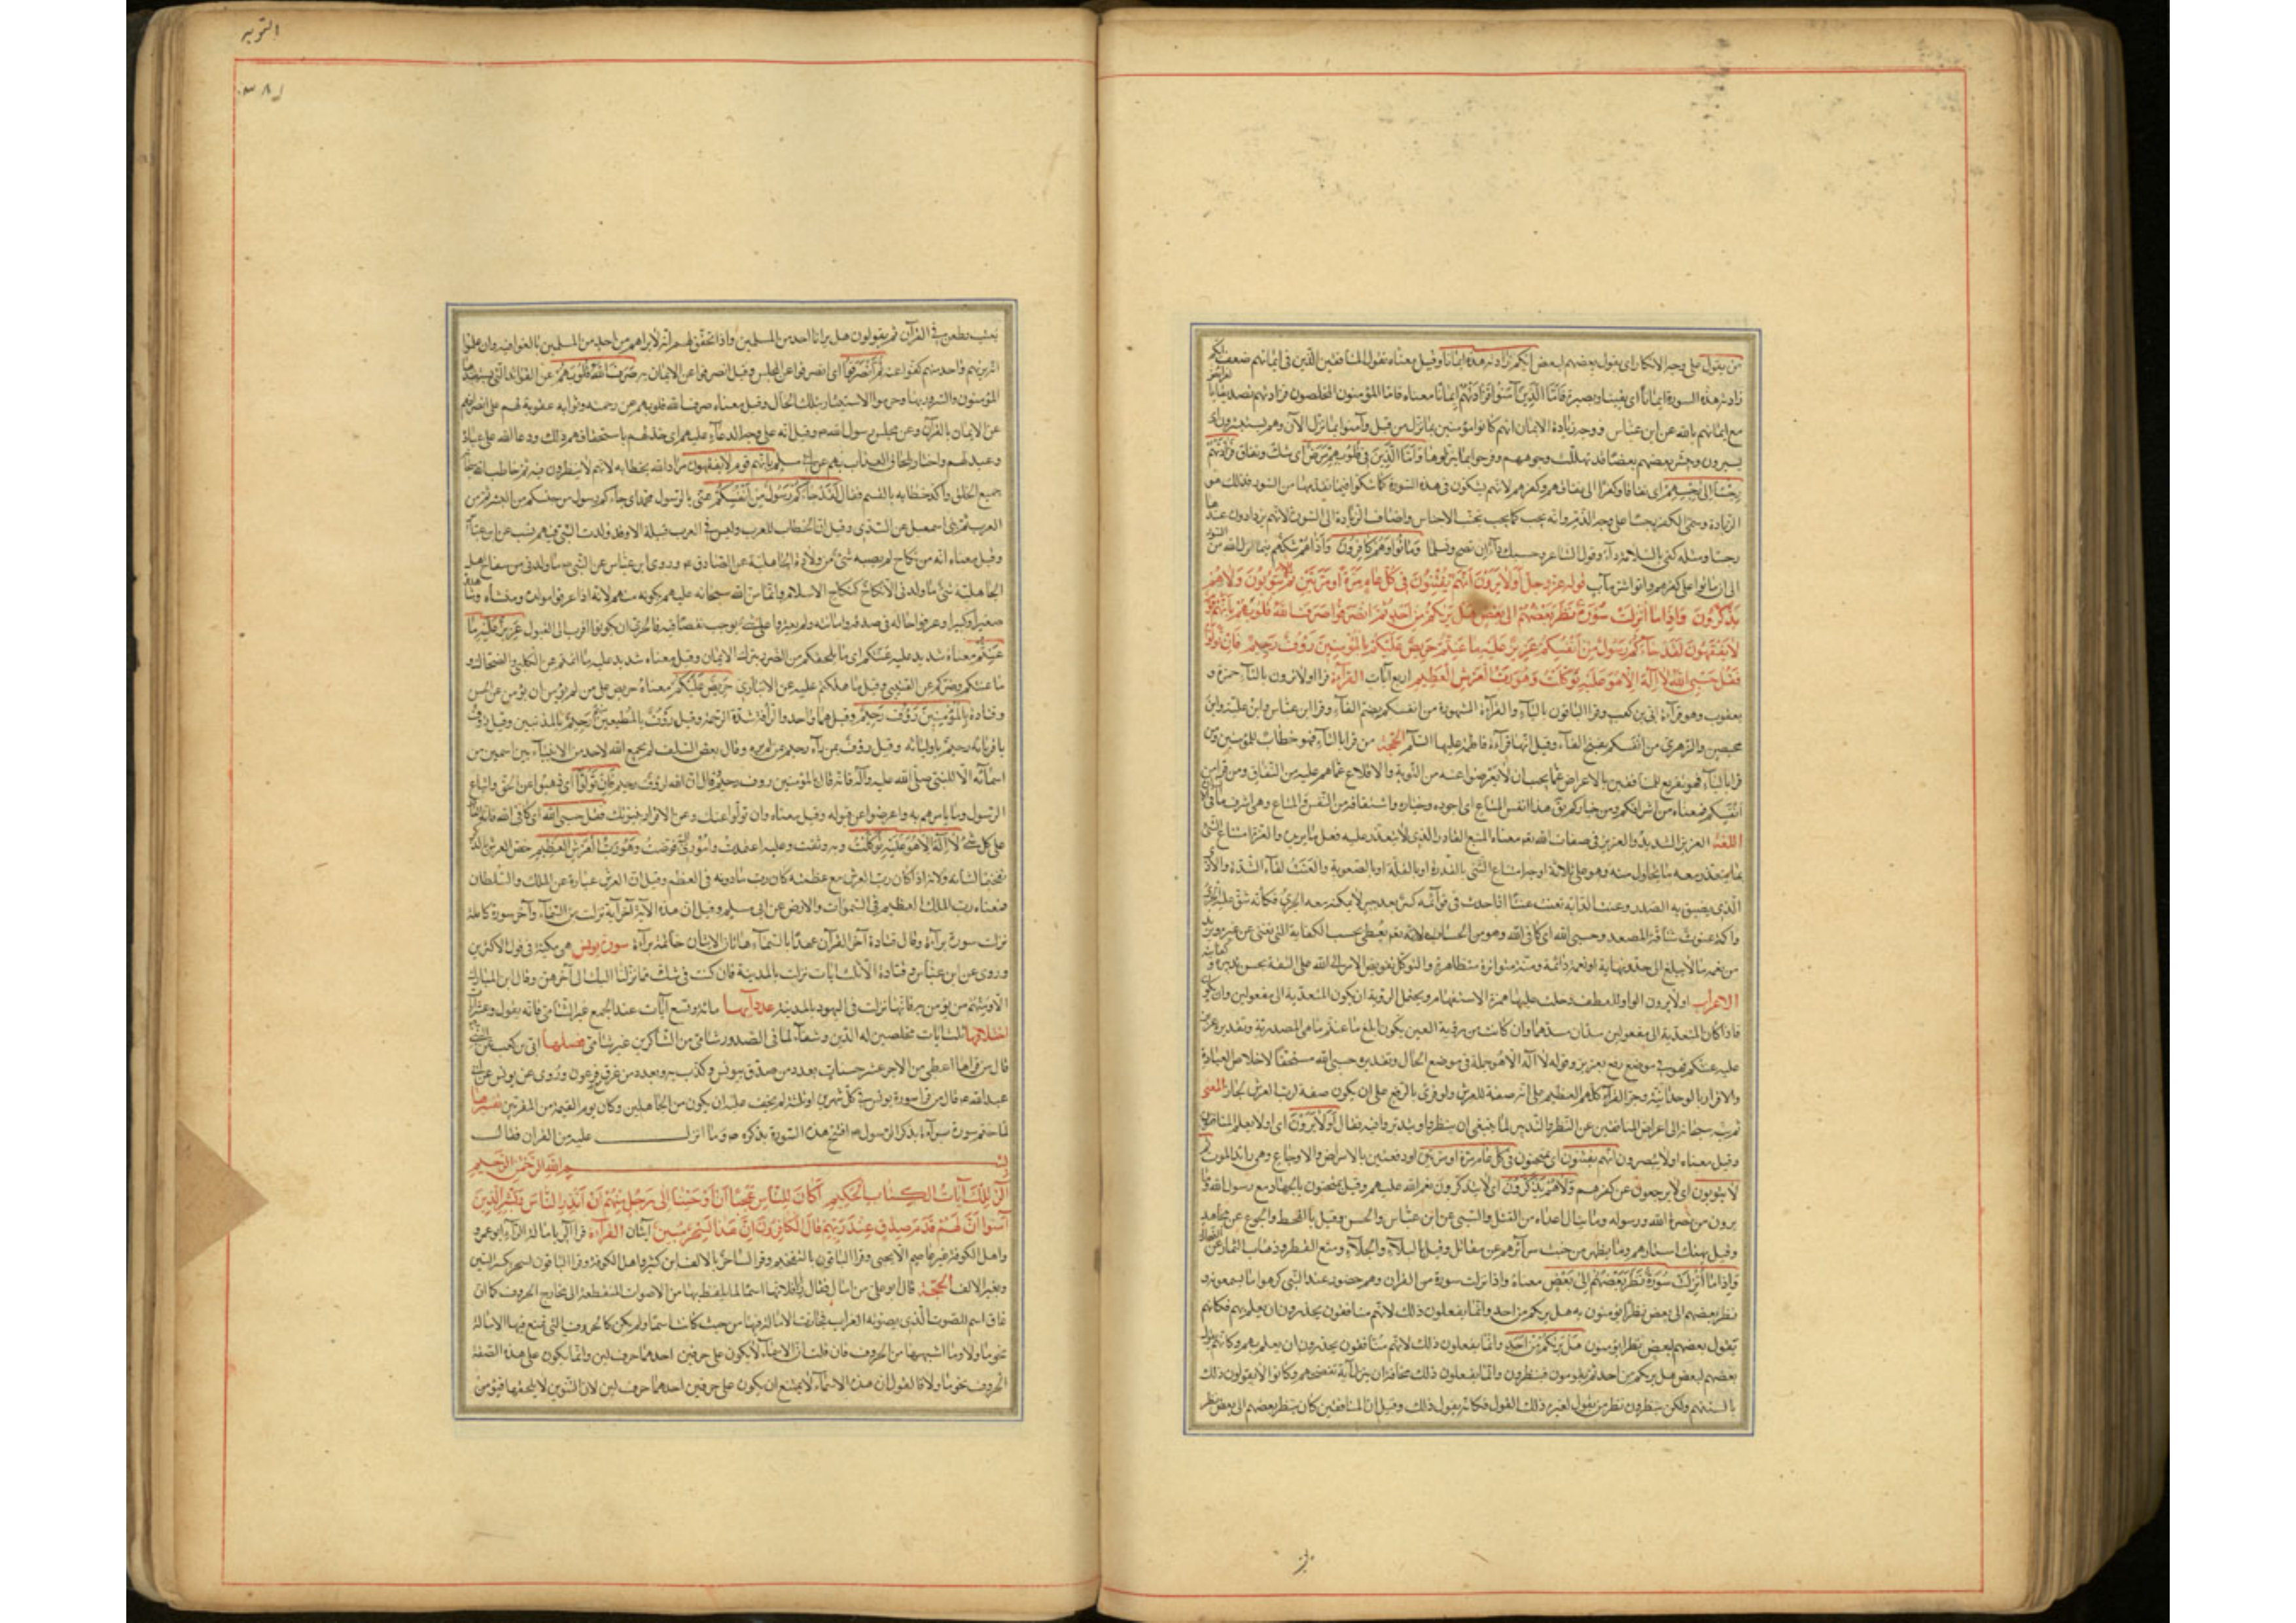 من يقول على وجه الانكار اى يقول بعضهم لبعض ايكم زادته هذه ايمانا وقيل معناه يقول المنافقين الذين فى ايمانهم ضعف ايكم
زادته هذه السورة ايمانا اى يقينا وبصيرة فَاَمَّا الَّذينَ آمَنُوا فَزادَتْهُمْ اِيمانًا معناه فاما المؤمنون المخلصون فزادتهم تصديقا
مع ايمانهم بالله عن ابن عباس ووجه زيادة الايمان انهم كانوا مؤمنين بما نزل من قبل وآمنوا بما نزل الآن وهم يستبشرون اى
يسرون ويبشر بعضهم بعضا قد تهللت وجوههم وفرحوا بما نزلوها وَاَمَّا الَّذينَ فى قُلُوبِهِمْ مَرَضٌ اى شك ونفاق فَزادَتْهُمْ
رِجْسًا اِلى رِجْسِهِمْ اى نفاقا وكفرا الى نفاقهم وكفرهم لانهم يشكون فى هذه السورة كما شكوا فيما تقدمها من السور فذلك هو
الزيادة وسمى الكفر رجسا على وجه الذم وانه يجب كما يجب تجنب الانجاس واضاف الزيادة الى السورة لانهم يزدادون عندها
رجسا ومثله كفى بالسلامة داء وقول الشاعر وحسبك داء ان تصح وتسلما وَماتُوا وَهُمْ كافِرُونَ واداهم شكهم بما انزل الله من السور
الى ان ماتوا على كفرهم وابوا شر مآب قوله عز وجل اَوَلا يَرَوْنَ اَنَّهُمْ يُفْتَنُونَ فى كُلِّ عامٍ مَرَّةً اَوْ مَرَّتَيْنِ ثُمَّ لا يَتُوبُونَ وَلا هُمْ
يَذَّكَّرُونَ وَاِذا ما اُنْزِلَتْ سُورَةٌ نَظَرَ بَعْضُهُمْ اِلى بَعْضٍ هَلْ يَريكُمْ مِنْ اَحَدٍ ثُمَّ انْصَرَفُوا صَرَفَ اللهُ قُلُوبَهُمْ بِاَنَّهُمْ قَوْمٌ
لا يَفْقَهُونَ لَقَدْ جاءَكُمْ رَسُولٌ مِنْ اَنْفُسِكُمْ عَزيزٌ عَلَيْهِ ما عَنِتُّمْ حَريصٌ عَلَيْكُمْ بِالْمُؤْمِنينَ رَؤُفٌ رَحيمٌ فَاِنْ تَوَلَّوْا
فَقُلْ حَسْبِىَ اللهُ لا اِلهَ اِلّا هُوَ عَلَيْهِ تَوَكَّلْتُ وَهُوَ رَبُّ الْعَرْشِ الْعَظيمِ اربع آيات القراءة قرا اولا ترون بالتاء حمزة و
يعقوب وهو قراءة ابى بن كعب وقرا الباقون بالياء والقراءة المشهورة من انفسكم بضم الفاء وقرا ابن عباس وابن علية وابن
محيصن والزهرى من انفسكم بفتح الفاء وقيل انها قراءة فاطمة عليها السلام الحجة من قرا بالتاء فهو خطاب للمؤمنين ومن
قرا بالياء فهو تقريع للمنافقين بالاعراض عما يجب ان لا يعرضوا عنه من التوبة والاقلاع عما هم عليه من النفاق ومن قرا من
انفسكم فمعناه من اشرافكم ومن خياركم يق هذا انفس المتاع اى اجوده وخياره واشتقاقه من النفس
اللغة العزيز الشديد والعزيز فى صفات الله تع معناه المنيع القادر الذى لا يتعذر عليه فعل ما يريده والعزة امتناع الشئ
بما يتعذر معه ما يحاول منه وهو على ثلاثة اوجه امتناع الشئ بالقدرة او بالقلة او بالصعوبة والعنت لقاء الشدة والاذى
الذى يضيق به الصدر وعنت الدابة تعنت عنتا اذا حدث فى قوائمه كسر بعد جبر لا يمكنه معه الجرى فكانه شق عليه الجرى
واكمة عنوت شاقة المصعد وحسبى الله اى كافى الله وهو من الحساب لانه تع يعطى بحسب الكفاية التى تغنى عن غيره ويزيد
من نعمه ما لا يبلغ الى حد ونهاية اذ نعمه دائمة ومننه متواترة متظاهرة والتوكل تفويض الامر الى الله على الثقة بحسن تدبيره وكفايته
الاعراب اولا يرون الواو للعطف دخلت عليها همزة الاستفهام ويحتمل الرؤية ان يكون المتعدية الى مفعولين وان يكون
فاذا كان المتعدية الى مفعولين سدان مسدهما وان كانت من رؤية العين يكون ما عنتم ما هى المصدرية وتقديره عزيز
عليه عنتكم فهو فى موضع رفع بعزيز وقوله لا اله الا هو جملة فى موضع الحال وتقديره حسبى الله مستحقا لاخلاص العبادة
والاقرار بالوحدانية وجر القراء كلهم العظيم على انه صفة للعرش ولو قرى بالرفع على ان يكون صفة لرب العرش لجاز المعنى
ثم نبه سبحانه الى اعراض المنافقين عن النظر والتدبر لما ينبغى ان ينظروا ويتدبروا فيه فقال اَوَلا يَرَوْنَ اى اولا يعلم المنافقون
وقيل معناه اولا يبصرون اَنَّهُمْ يُفْتَنُونَ اى يمتحنون فى كُلِّ عامٍ مرة او مرتين اى دفعة او دفعتين بالامراض والاوجاع وهى رائد الموت ثم
لا يتوبون اى لا يرجعون عن كفرهم وَلا هُمْ يَذَّكَّرُونَ اى لا يتذكرون نعم الله عليهم وقيل يمتحنون بالجهاد مع رسول الله وما
يرون من نصرة الله ورسوله وما ينال اعداءه من القتل والسبى عن ابن عباس والحسن وقيل بالقحط والجوع عن مجاهد
وقيل بهتك استارهم وما يظهر من خبث سرائرهم عن مقاتل وقيل بالبلاء والجلاء ومنع القطر وذهاب الثمار عن الضحاك
وَاِذا ما اُنْزِلَتْ سُورَةٌ نَظَرَ بَعْضُهُمْ اِلى بَعْضٍ معناه واذا نزلت سورة من القرآن وهم حضور عند النبى كرهوا ما يسمعونه و
نظر بعضهم الى بعض نظرا يؤمنون به هل يريكم من احد وانما يفعلون ذلك لانهم منافقون يحذرون ان يعلم بهم فكانهم
يقول بعضهم لبعض نظرا يؤمنون هَلْ يَريكُمْ مِنْ اَحَدٍ وانما يفعلون ذلك لانهم منافقون يحذرون ان يعلم بهم وكانهم يقول
بعضهم لبعض هل يريكم من احد ثم يقومون فينظرون وانما يفعلون ذلك مخافة ان ينزل آية تفضحهم وكانوا لا يقولون ذلك
بالسنتهم ولكن ينظرون نظر من يقول لغيره ذلك القول فكانه يقول ذلك وقيل ان المنافقين كان ينظر بعضهم الى بعض نظر
ز
التوبه
٣٨
تعنت وطعن فى القرآن ثم يقولون هل يرانا احد من المسلمين واذا تحقق لهم انه لا يراهم من احد من المسلمين بالغوا فيه وان علموا
انه يريهم واحد منهم كفوا عنه ثُمَّ انْصَرَفُوا اى انصرفوا عن المجلس وقيل انصرفوا عن الايمان به صَرَفَ اللهُ قُلُوبَهُمْ عن الفوائد التى يستفيدها
المؤمنون والسرور بها وحرموا الاستبشار بتلك الحال وقيل معناه صرف الله قلوبهم عن رحمته وثوابه عقوبة لهم على انصرافهم
عن الايمان بالقرآن وعن مجلس رسول الله ص وقيل انه على وجه الدعاء عليهم اى خذلهم باستحقاقهم ذلك ودعا الله على عباده
وعيد لهم واخبار بلحاق العذاب بهم عن ابى مسلم بِاَنَّهُمْ قَوْمٌ لا يَفْقَهُونَ مراد الله بخطابه لانهم لا ينظرون فيه ثم خاطب الله سبحانه
جميع الخلق واكد خطابه بالقسم فقال لَقَدْ جاءَكُمْ رَسُولٌ مِنْ اَنْفُسِكُمْ عنى بالرسول محمدا اى جاءكم رسول من جنسكم من البشر ثم من
العرب ثم بنى اسمعيل عن السدى وقيل ان الخطاب للعرب وليس فى العرب قبيلة الا وقد ولدت النبى وفيهم نسب عن ابن عباس
وقيل معناه انه من نكاح لم يصبه شئ من ولادة الجاهلية عن الصادق ع وروى ابن عباس عن النبى ص ما ولدنى من سفاح اهل
الجاهلية شئ ما ولدنى الا نكاح كنكاح الاسلام وانما من الله سبحانه عليهم بكونه منهم لانه اذا عرفوا مولده ومنشأه وشاهدوه
صغيرا وكبيرا وعرفوا حاله فى صدقه وامانته ولم يعثروا على شئ يوجب نقصا فيه فبالحرى ان يكونوا اقرب الى القبول عَزيزٌ عَلَيْهِ ما
عَنِتُّمْ معناه شديد عليه عنتكم اى ما يلحقكم من الضرر بترك الايمان وقيل معناه شديد عليه ما اثمتم عن الكلبى والضحاك و
ما عنتكم وضركم عن القتيبى وقيل ما هلكتم عليه عن الانبارى حَريصٌ عَلَيْكُمْ معناه حريص على من لم يؤمن ان يؤمن عن الحسن
وقتادة بِالْمُؤْمِنينَ رَؤُفٌ رَحيمٌ وقيل هما واحد والرأفة شدة الرحمة وقيل رؤف بالمطيعين رحيم بالمذنبين وقيل رؤف
باقربائه رحيم باوليائه وقيل رؤف بمن رآه رحيم بمن لم يره وقال بعض السلف لم يجمع الله لاحد من الانبياء بين اسمين من
اسمائه الا للنبى صلى الله عليه وآله فانه قال بالمؤمنين رؤف رحيم وقال ان الله لرؤف رحيم فَاِنْ تَوَلَّوْا اى ذهبوا عن الحق واتباع
الرسول وما يامرهم به واعرضوا عن قبوله وقيل معناه وان تولوا عنك وعن الاقرار بنبوتك فَقُلْ حَسْبِىَ اللهُ اى كافى الله فانه القادر
على كل شئ لا اِلهَ اِلّا هُوَ عَلَيْهِ تَوَكَّلْتُ وبه وثقت وعليه اعتمدت وامورى فوضت وَهُوَ رَبُّ الْعَرْشِ الْعَظيمِ خص العرش بالذكر
تفخيما لشانه ولانه اذا كان رب العرش مع عظمته كان رب ما دونه فى العظم وقيل ان العرش عبارة عن الملك والسلطان
فمعناه رب الملك العظيم فى السموات والارض عن ابى مسلم وقيل ان هذه الآية آخر آية نزلت من السماء وآخر سورة كاملة
نزلت سورة براءة وقال قتادة آخر القرآن عهدا بالسماء هاتان الايتان خاتمة براءة سورة يونس هى مكية فى قول الاكثرين
وروى عن ابن عباس وقتادة الا ثلث ايات نزلت بالمدينة فان كنت فى شك مما انزلنا اليك الى آخرهن وقال ابن المبارك
الا ومنهم من يؤمن به فانها نزلت فى اليهود بالمدينة عدد آيها مائة وتسع آيات عند الجميع غير الشامى فانه يقول وعشر آيات
اختلافها ثلث ايات مخلصين له الدين وشفاء لما فى الصدور شامى من الشاكرين غير شامى فضلها ابى بن كعب عن النبى
قال من قراها اعطى من الاجر عشر حسنات بعدد من صدق بيونس وكذب به وبعدد من غرق مع فرعون وروى عن
عبد الله ع قال من قرا سورة يونس فى كل شهرين او ثلثة لم يخف عليه ان يكون من الجاهلين وكان يوم القيمة من المقربين تفسيرها
لما ختم سورة براءة بذكر الرسول ص افتتح هذه السورة بذكره ص وما انزل عليه من القران فقال
بسم الله الرحمن الرحيم
الر تِلْكَ آياتُ الْكِتابِ الْحَكيمِ اَكانَ لِلنّاسِ عَجَبًا اَنْ اَوْحَيْنا اِلى رَجُلٍ مِنْهُمْ اَنْ اَنْذِرِ النّاسَ وَبَشِّرِ الَّذينَ
آمَنُوا اَنَّ لَهُمْ قَدَمَ صِدْقٍ عِنْدَ رَبِّهِمْ قالَ الْكافِرُونَ اِنَّ هذا لَسِحْرٌ مُبينٌ آيتان القراءة قرا الر بامالة الراء ابو عمرو
واهل الكوفة غير عاصم الا يحيى وقرا الباقون بالتفخيم وقرا لساحر بالالف ابن كثير واهل الكوفة وقرا الباقون لسحر بكسر السين
وبغير الالف الحجة قال ابو على من امال فقال را فلانها اسم لما يلفظ بها من الاصوات المتقطعة الى مخارج الحروف كما ان
غاق اسم للصوت الذى يصوته الغراب فجازت الامالة فيها من حيث كانت اسما ولم يكن كالحروف التى تمتنع فيها الامالة
نحو ما ولا وما اشبههما من الحروف فان قلت ان الاسماء لا يكون على حرفين احدهما حرف لين وانما يكون على هذه الصفة
الحروف نحو ما ولا فالقول ان هذه الاسماء لا يمتنع ان يكون على حرفين احدهما حرف لين لان التنوين لا يلحقها فيؤمن